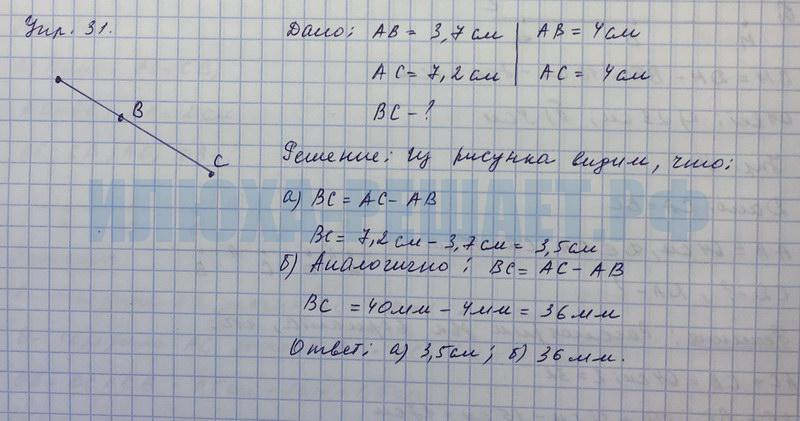 Упр. 31.
Дано: AB = 3,7 см | AB = 4 см
AC = 7,2 см | AC = 4 см
BC - ?
B
C
Решение: Из рисунка видим, что:
а) BC = AC - AB
BC = 7,2 см - 3,7 см = 3,5 см
б) Аналогично: BC = AC - AB
BC = 40 мм - 4 мм = 36 мм
Ответ: а) 3,5 см; б) 36 мм.
ИЛЮХА-РЕШАЕТ.РФ